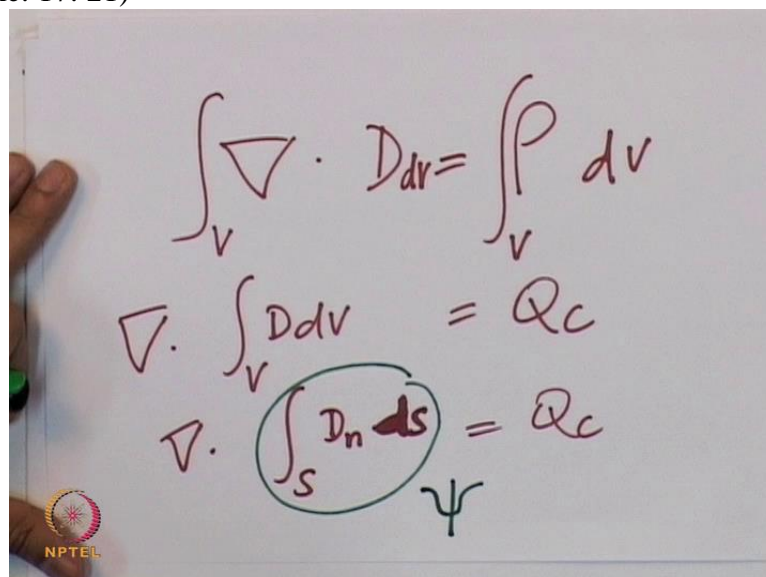 ∫_V ∇ · D dv = ∫_V ρ dv
∇ · ∫_V D dv = Qc
∇ · ∫_S Dn ds = Qc
ψ
NPTEL